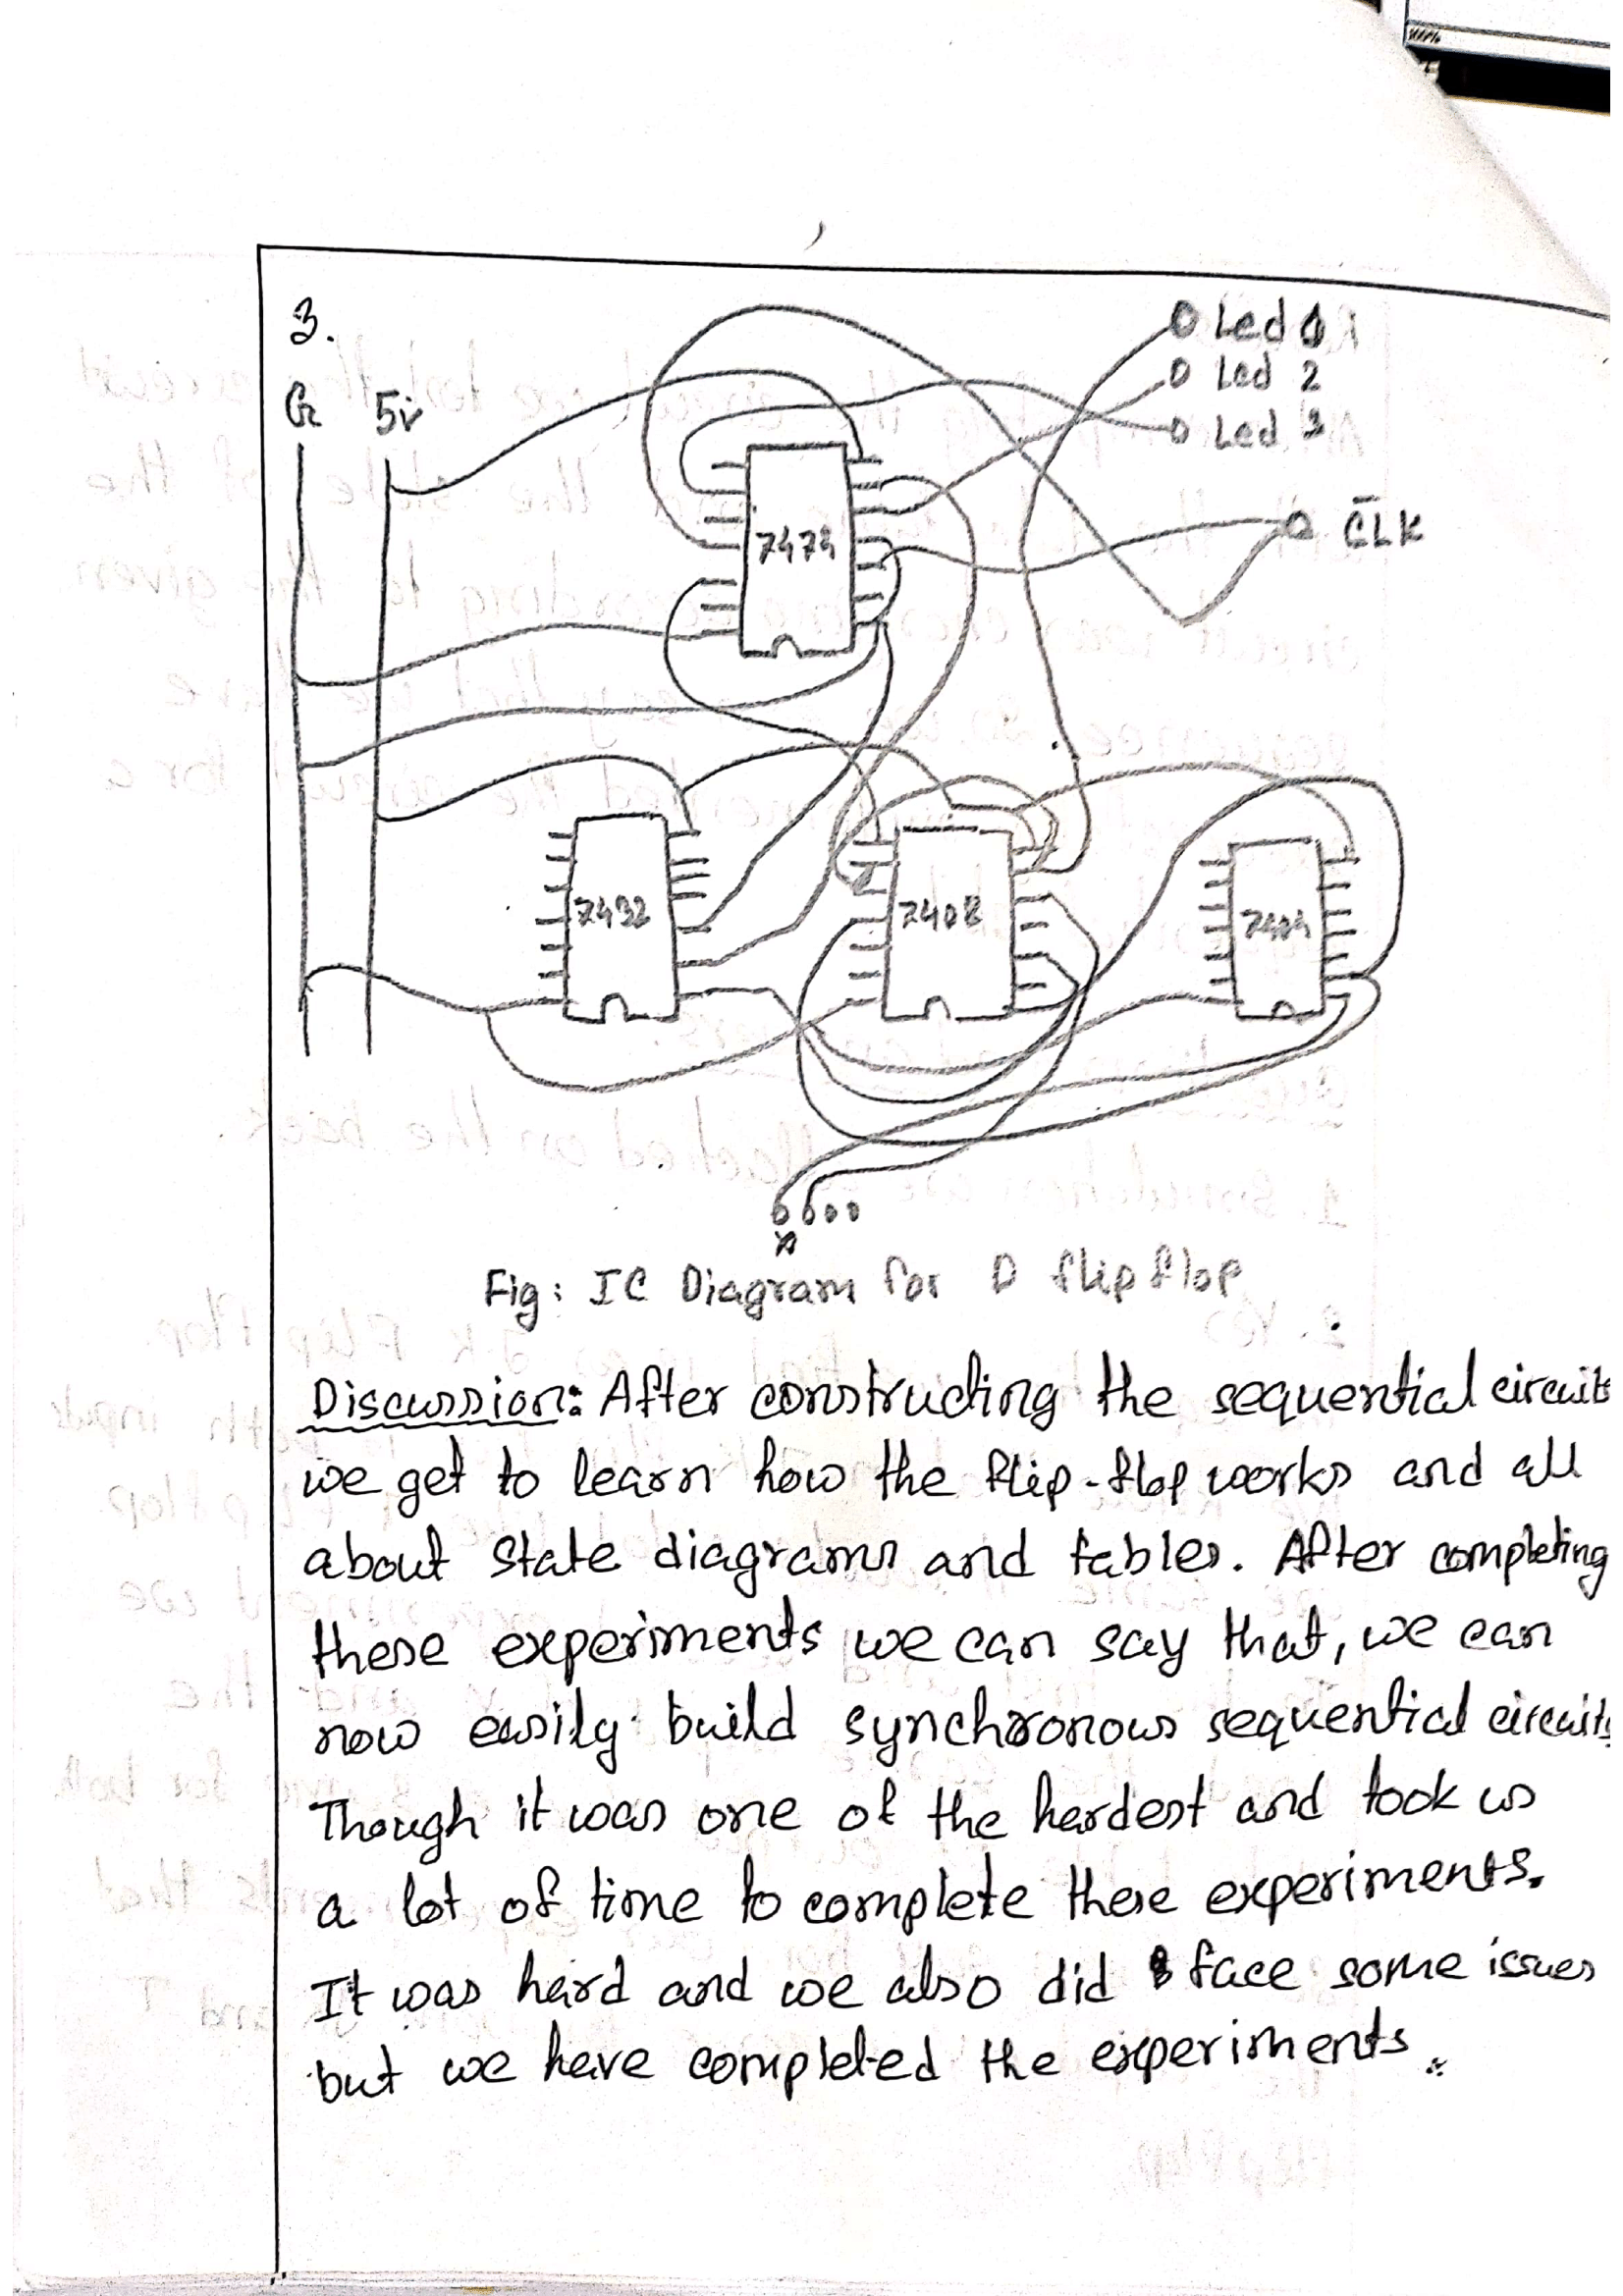 3.
G 5v
Led 1
Led 2
Led 3
CLK
7474
7432
7408
7404
X
Fig: IC Diagram for D flip flop
Discussion: After constructing the sequential circuits
we get to learn how the flip-flop works and all
about state diagrams and tables. After completing
these experiments we can say that, we can
now easily build synchoronous sequential circuits
Though it was one of the hardest and took us
a lot of time to complete these experiments.
It was hard and we also did face some issues
but we have completed the experiments.